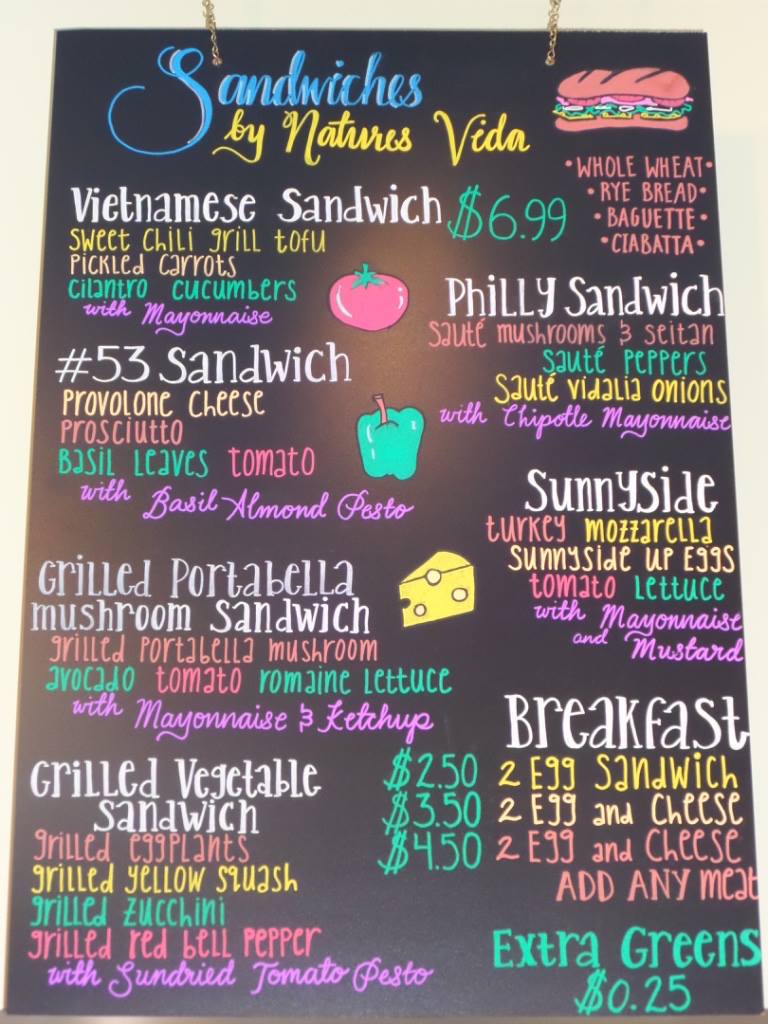 Sandwiches
by Natures Vida
• WHOLE WHEAT •
• RYE BREAD •
• BAGUETTE •
• CIABATTA •
Vietnamese Sandwich $6.99
Sweet Chili grill tofu
Pickled Carrots
Cilantro cucumbers
with Mayonnaise
Philly Sandwich
Sauté mushrooms & seitan
Sauté peppers
Sauté vidalia onions
with Chipotle Mayonnaise
#53 Sandwich
Provolone Cheese
Prosciutto
Basil Leaves tomato
with Basil Almond Pesto
Sunnyside
turkey mozzarella
Sunnyside up Eggs
tomato Lettuce
with Mayonnaise
and Mustard
Grilled Portabella
mushroom Sandwich
grilled Portabella mushroom
avocado tomato romaine Lettuce
with Mayonnaise & Ketchup
Breakfast
$2.50 2 Egg Sandwich
$3.50 2 Egg and Cheese
$4.50 2 Egg and Cheese
ADD ANY meat
Grilled Vegetable
Sandwich
grilled eggplants
grilled yellow squash
grilled zucchini
grilled red bell pepper
with Sundried Tomato Pesto
Extra Greens
$0.25